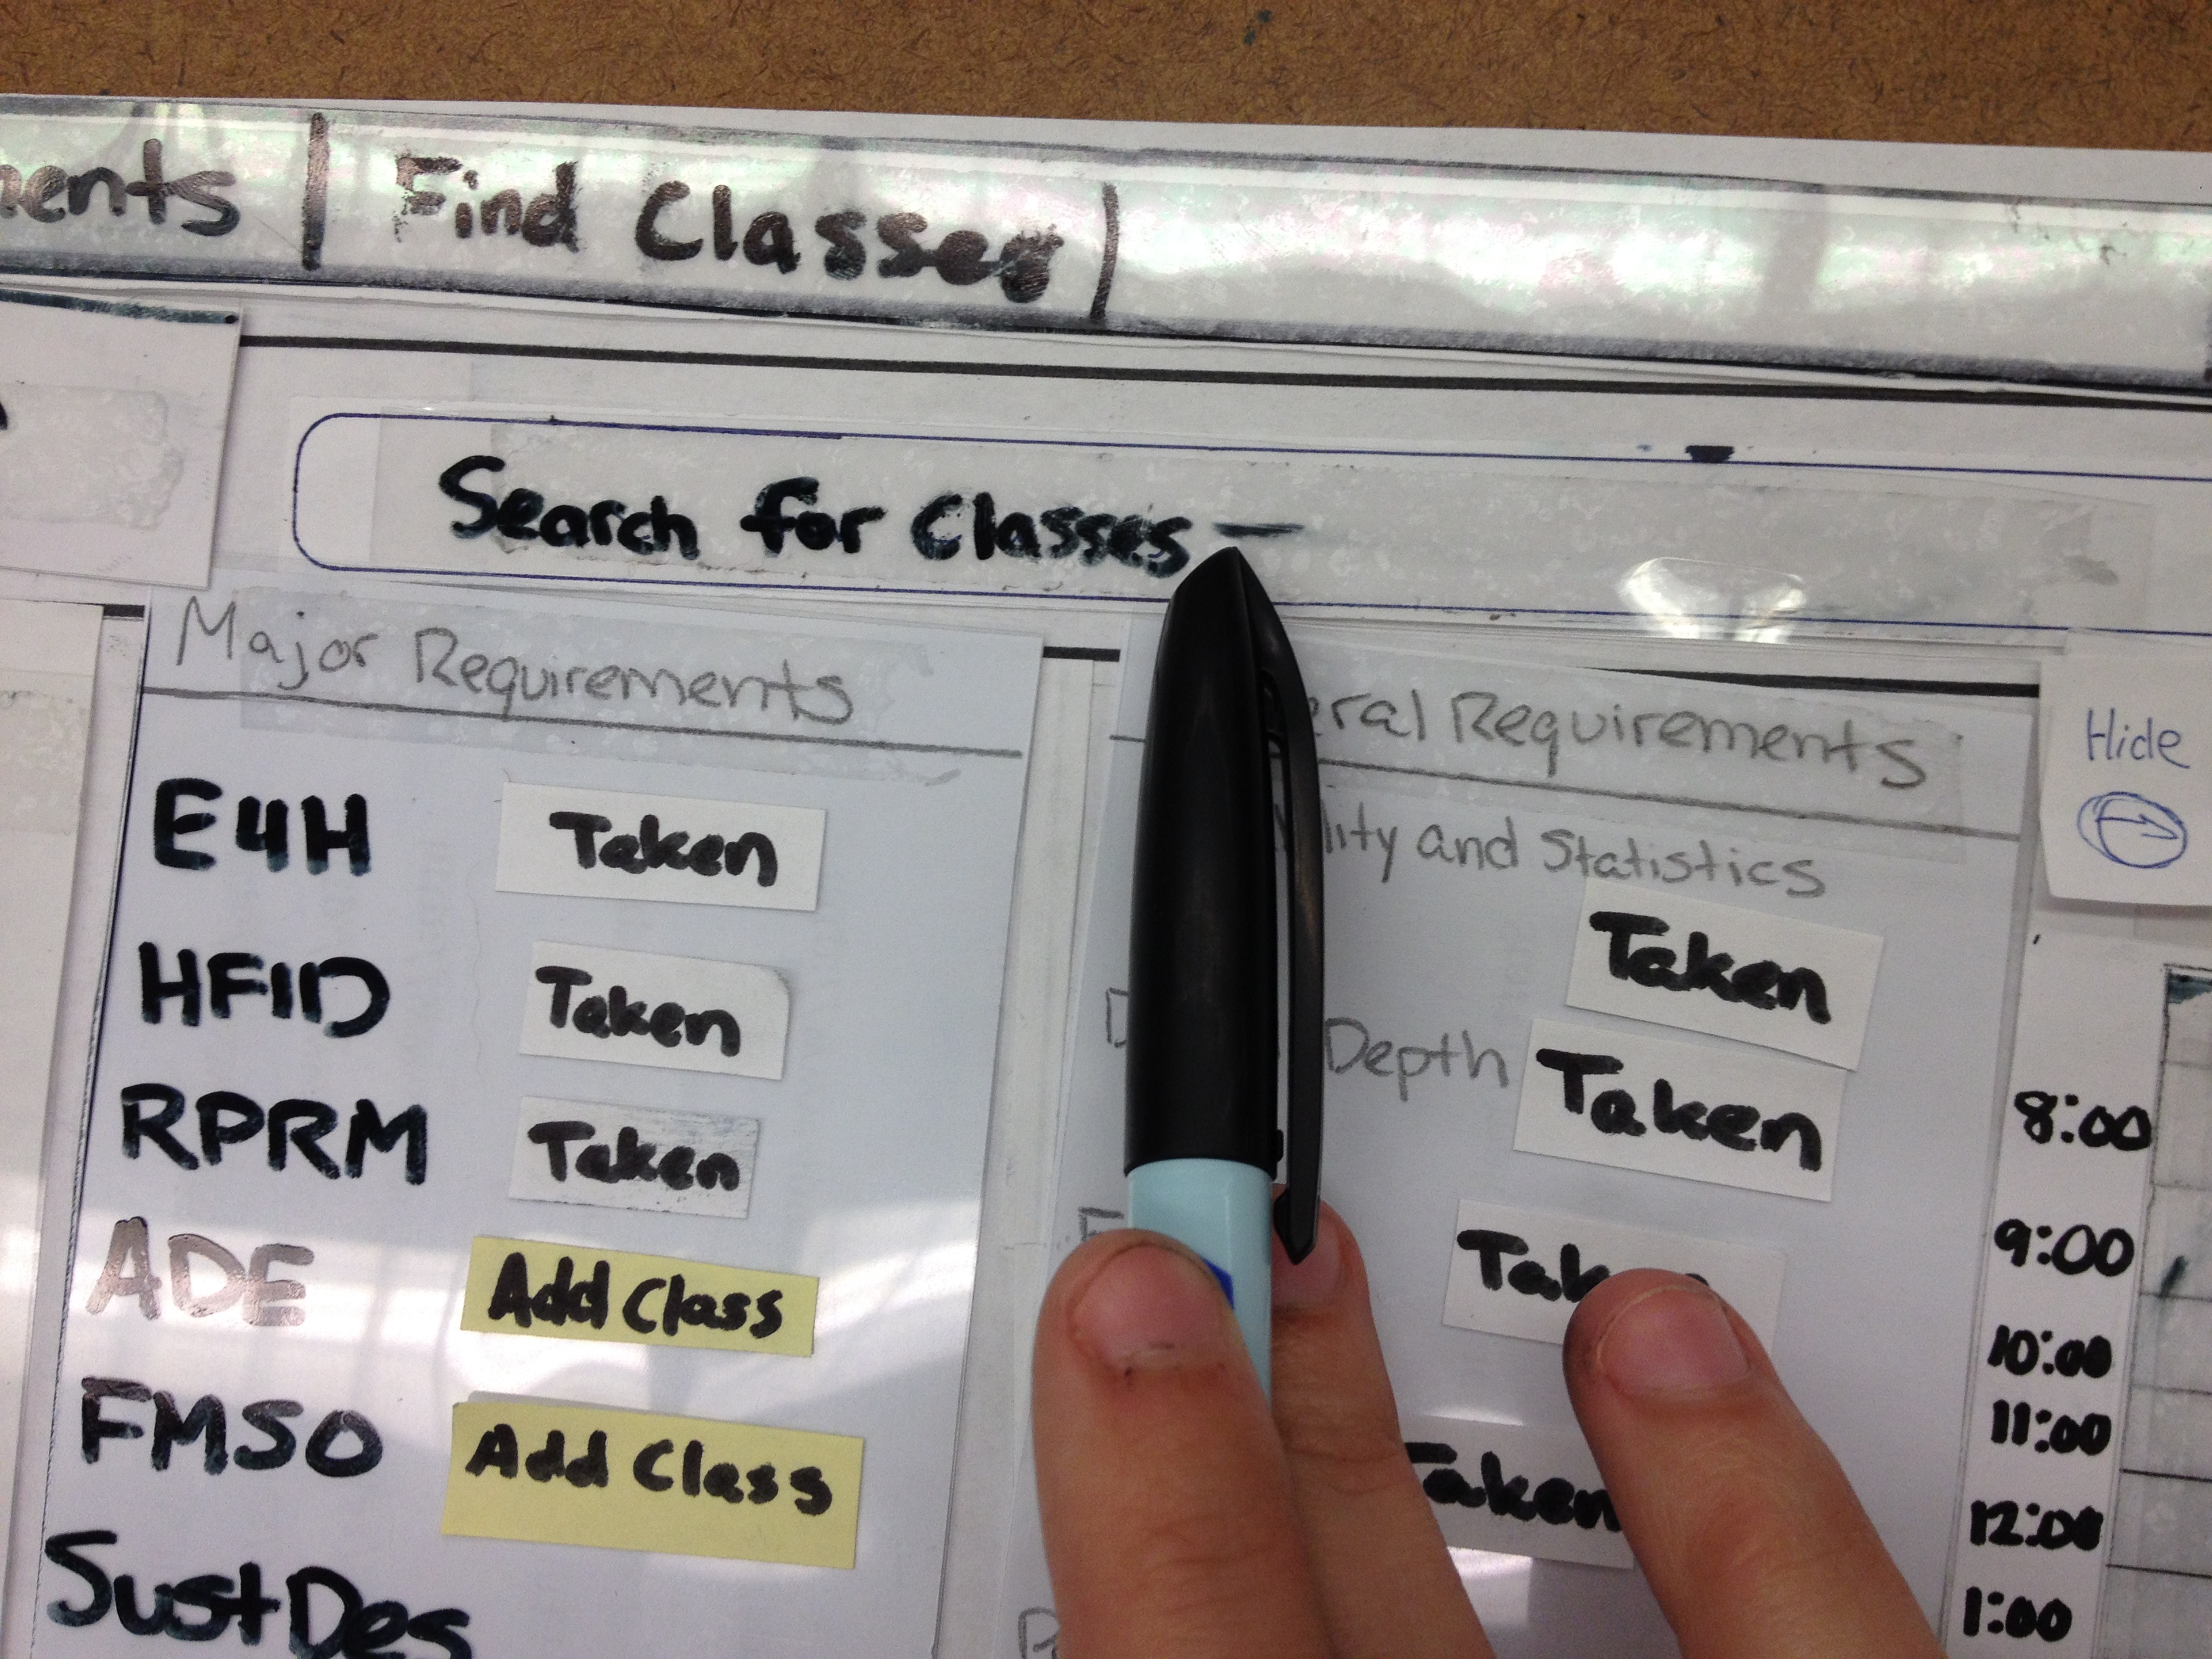 Find Classes
Search for Classes
Major Requirements
E4H Taken
HFID Taken
RPRM Taken
ADE Add Class
FMSO Add Class
SustDes
Requirements
and Statistics
Taken
Depth Taken
Taken
Hide
8:00
9:00
10:00
11:00
12:00
1:00